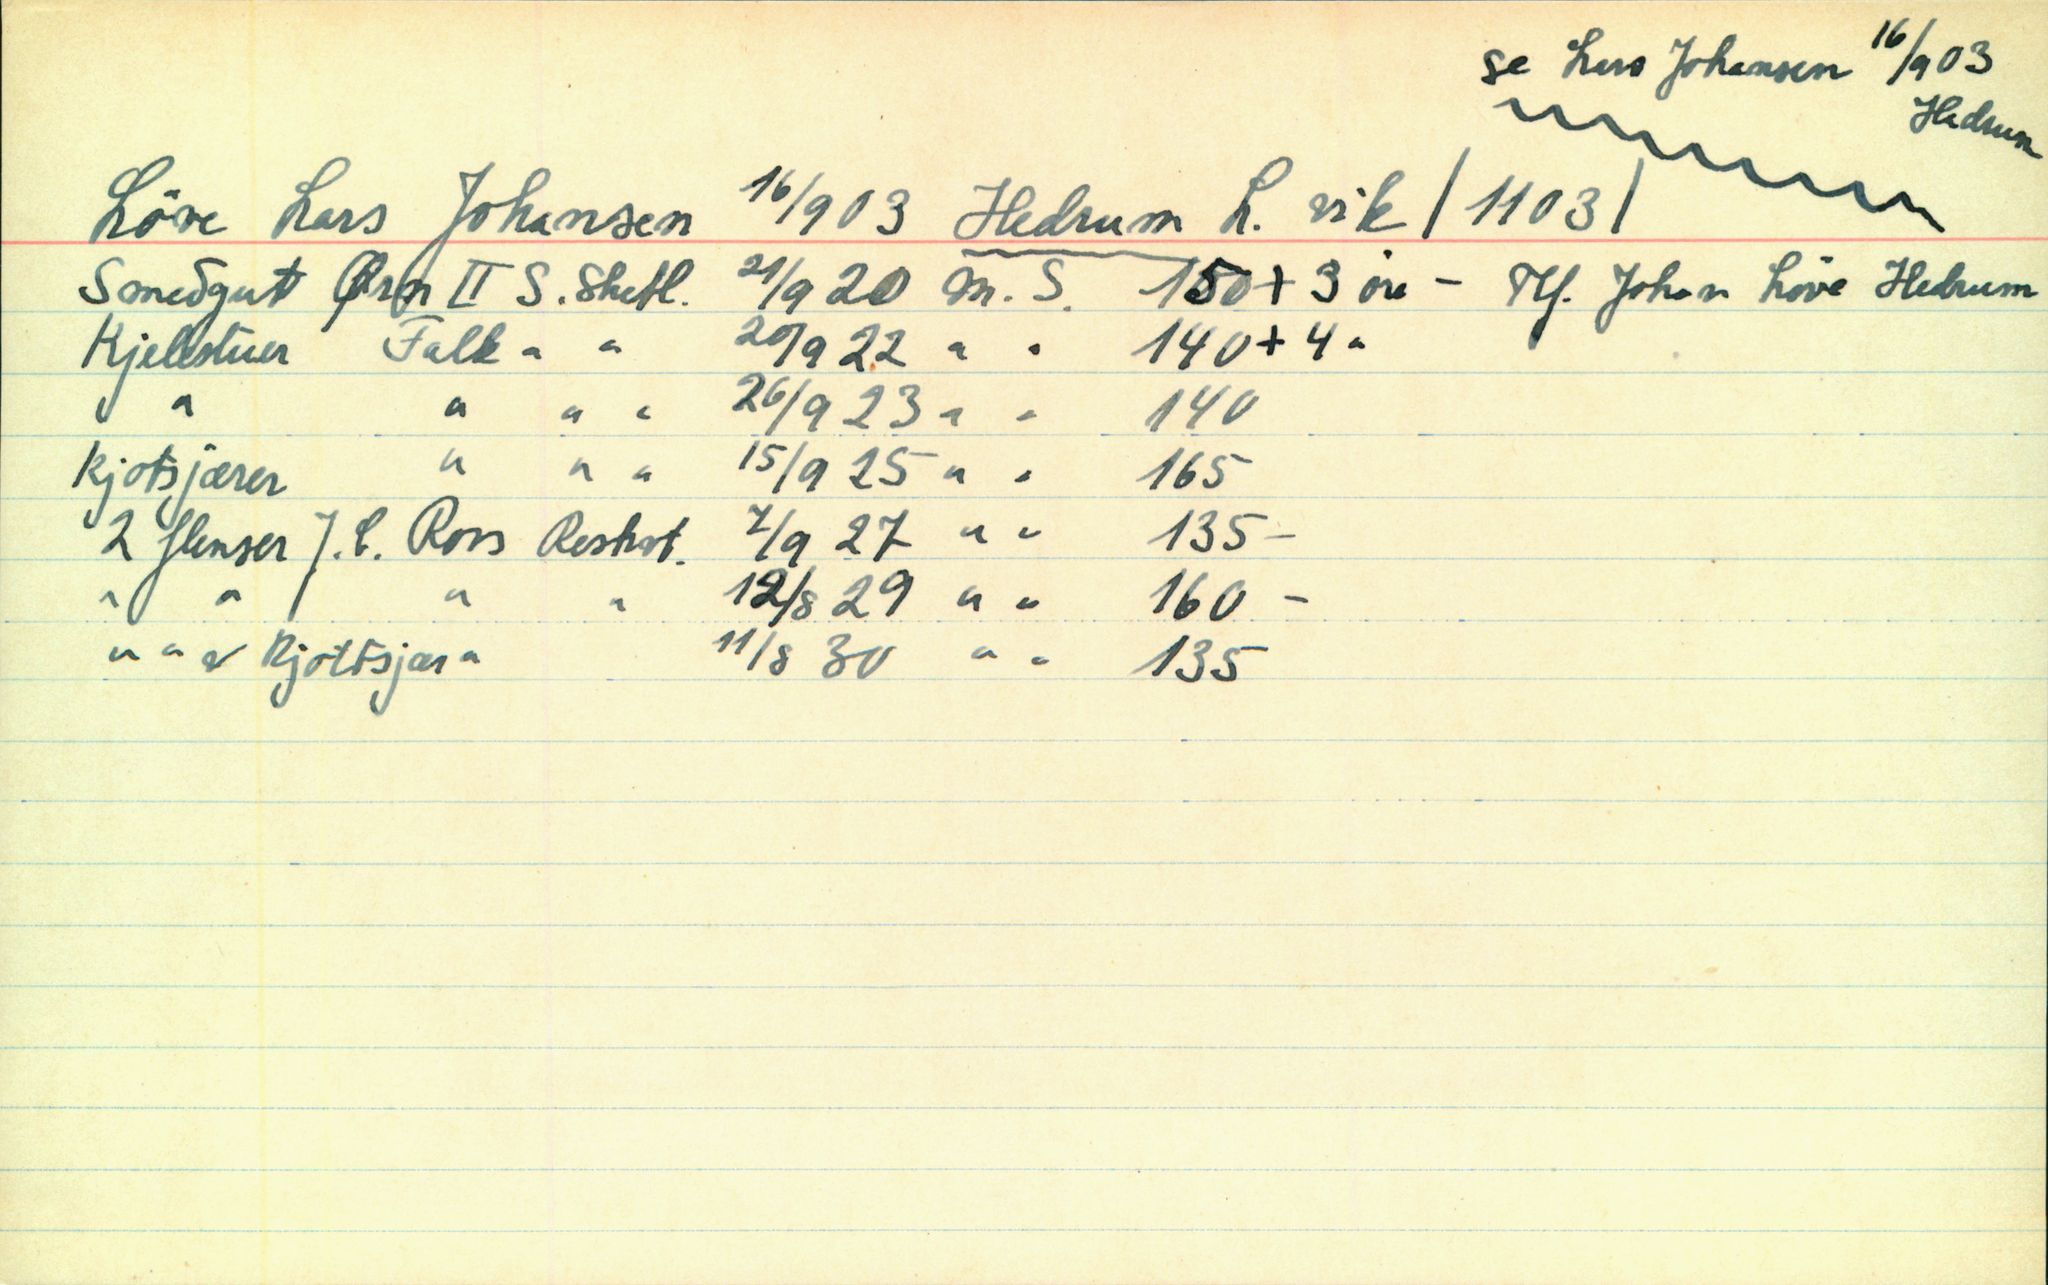 se Lars Johansen 16/9 03
Hedrum
Löve Lars Johansen 16/9 03 Hedrum L. vik / 1103 /
Smedgut Ørn II S. Shetl. 21/9 20 m. S. 150 + 3 öre - Tlf. Johan Löve Hedrum
Kjelestuer Falk " " 20/9 22 " " 140 + 4 "
" " " " 26/9 23 " " 140
Kjotsjærer " " " 15/9 25 " " 165
2 flenser J. C. Ross Rosh. 7/9 27 " " 135 -
" " " " 12/8 29 " " 160 -
" " & Kjöttsjær " 11/8 30 " " 135